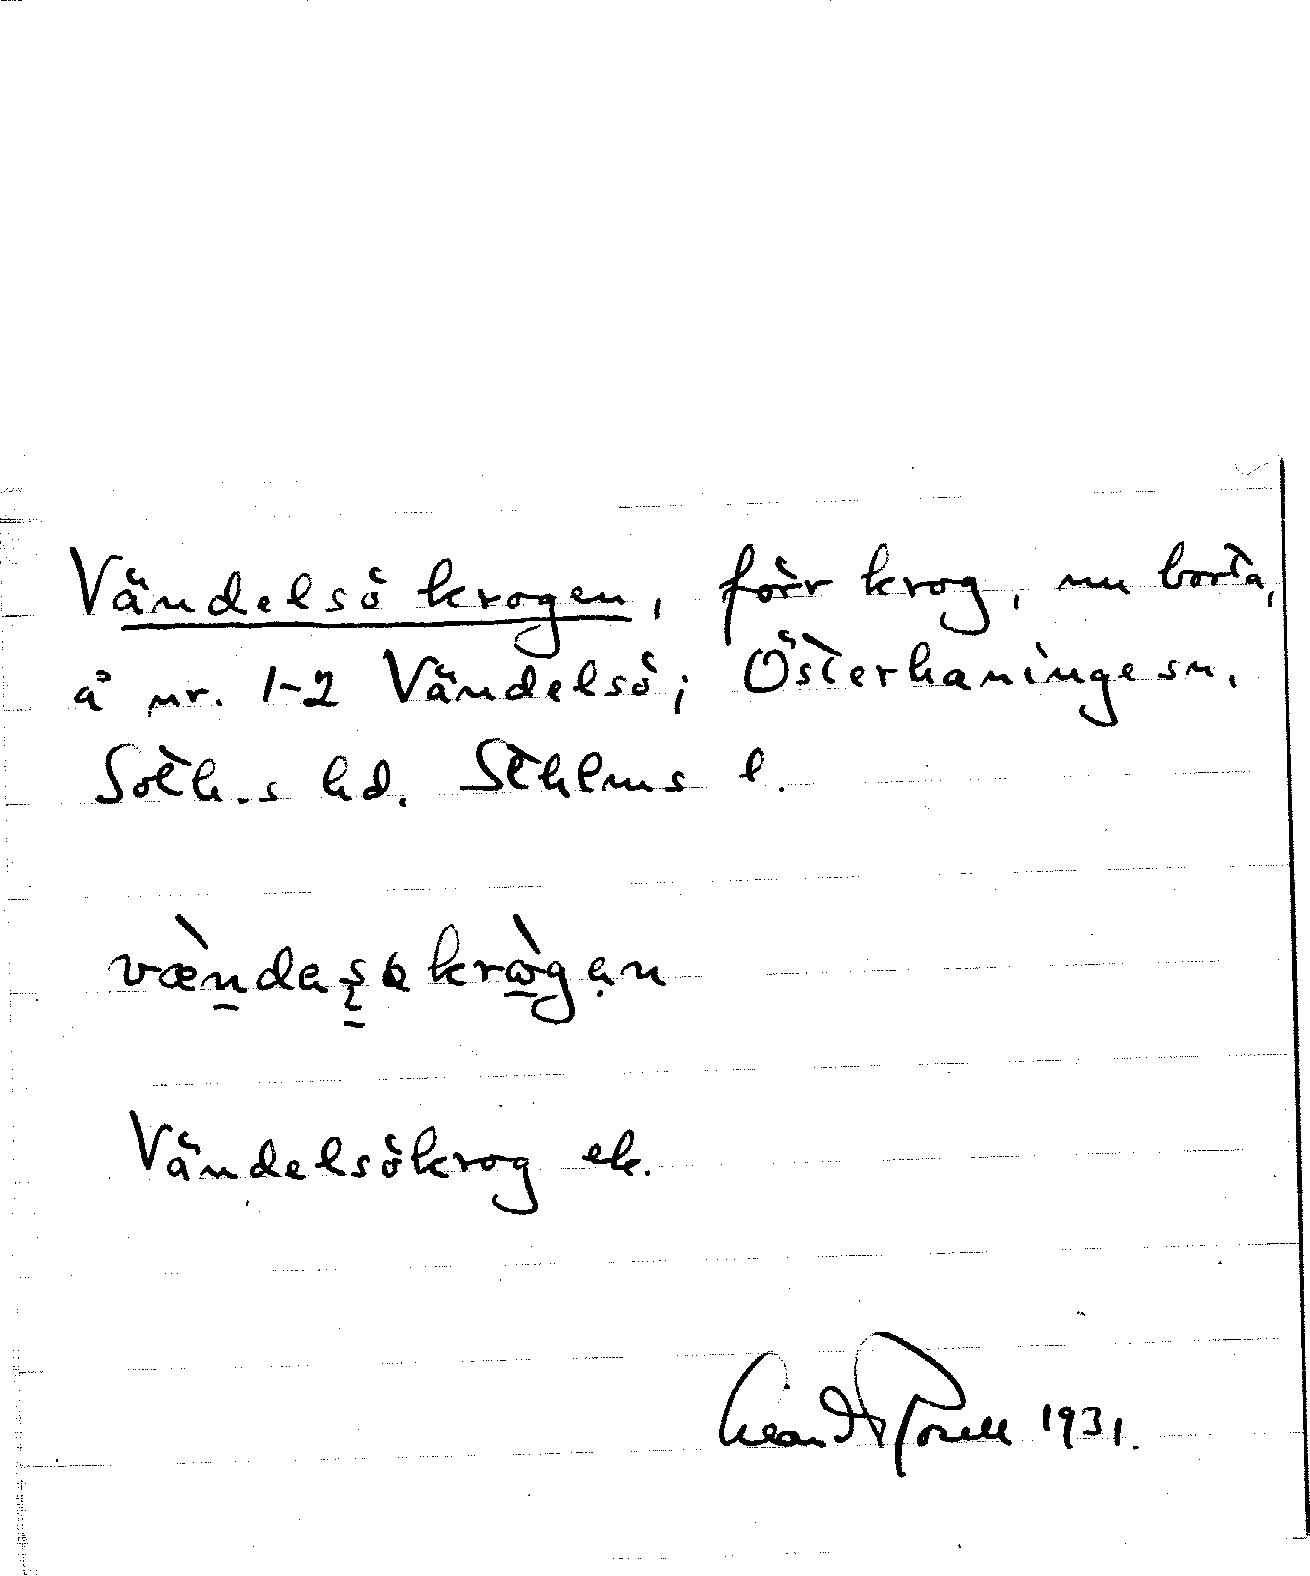 Vändelsö krogen, förr krog, nu borta,
å nr. 1-2 Vändelsö; Österhaninge sn.
Soth.s hd. Sthlms l.
Vändelsökrog ek.
1931.